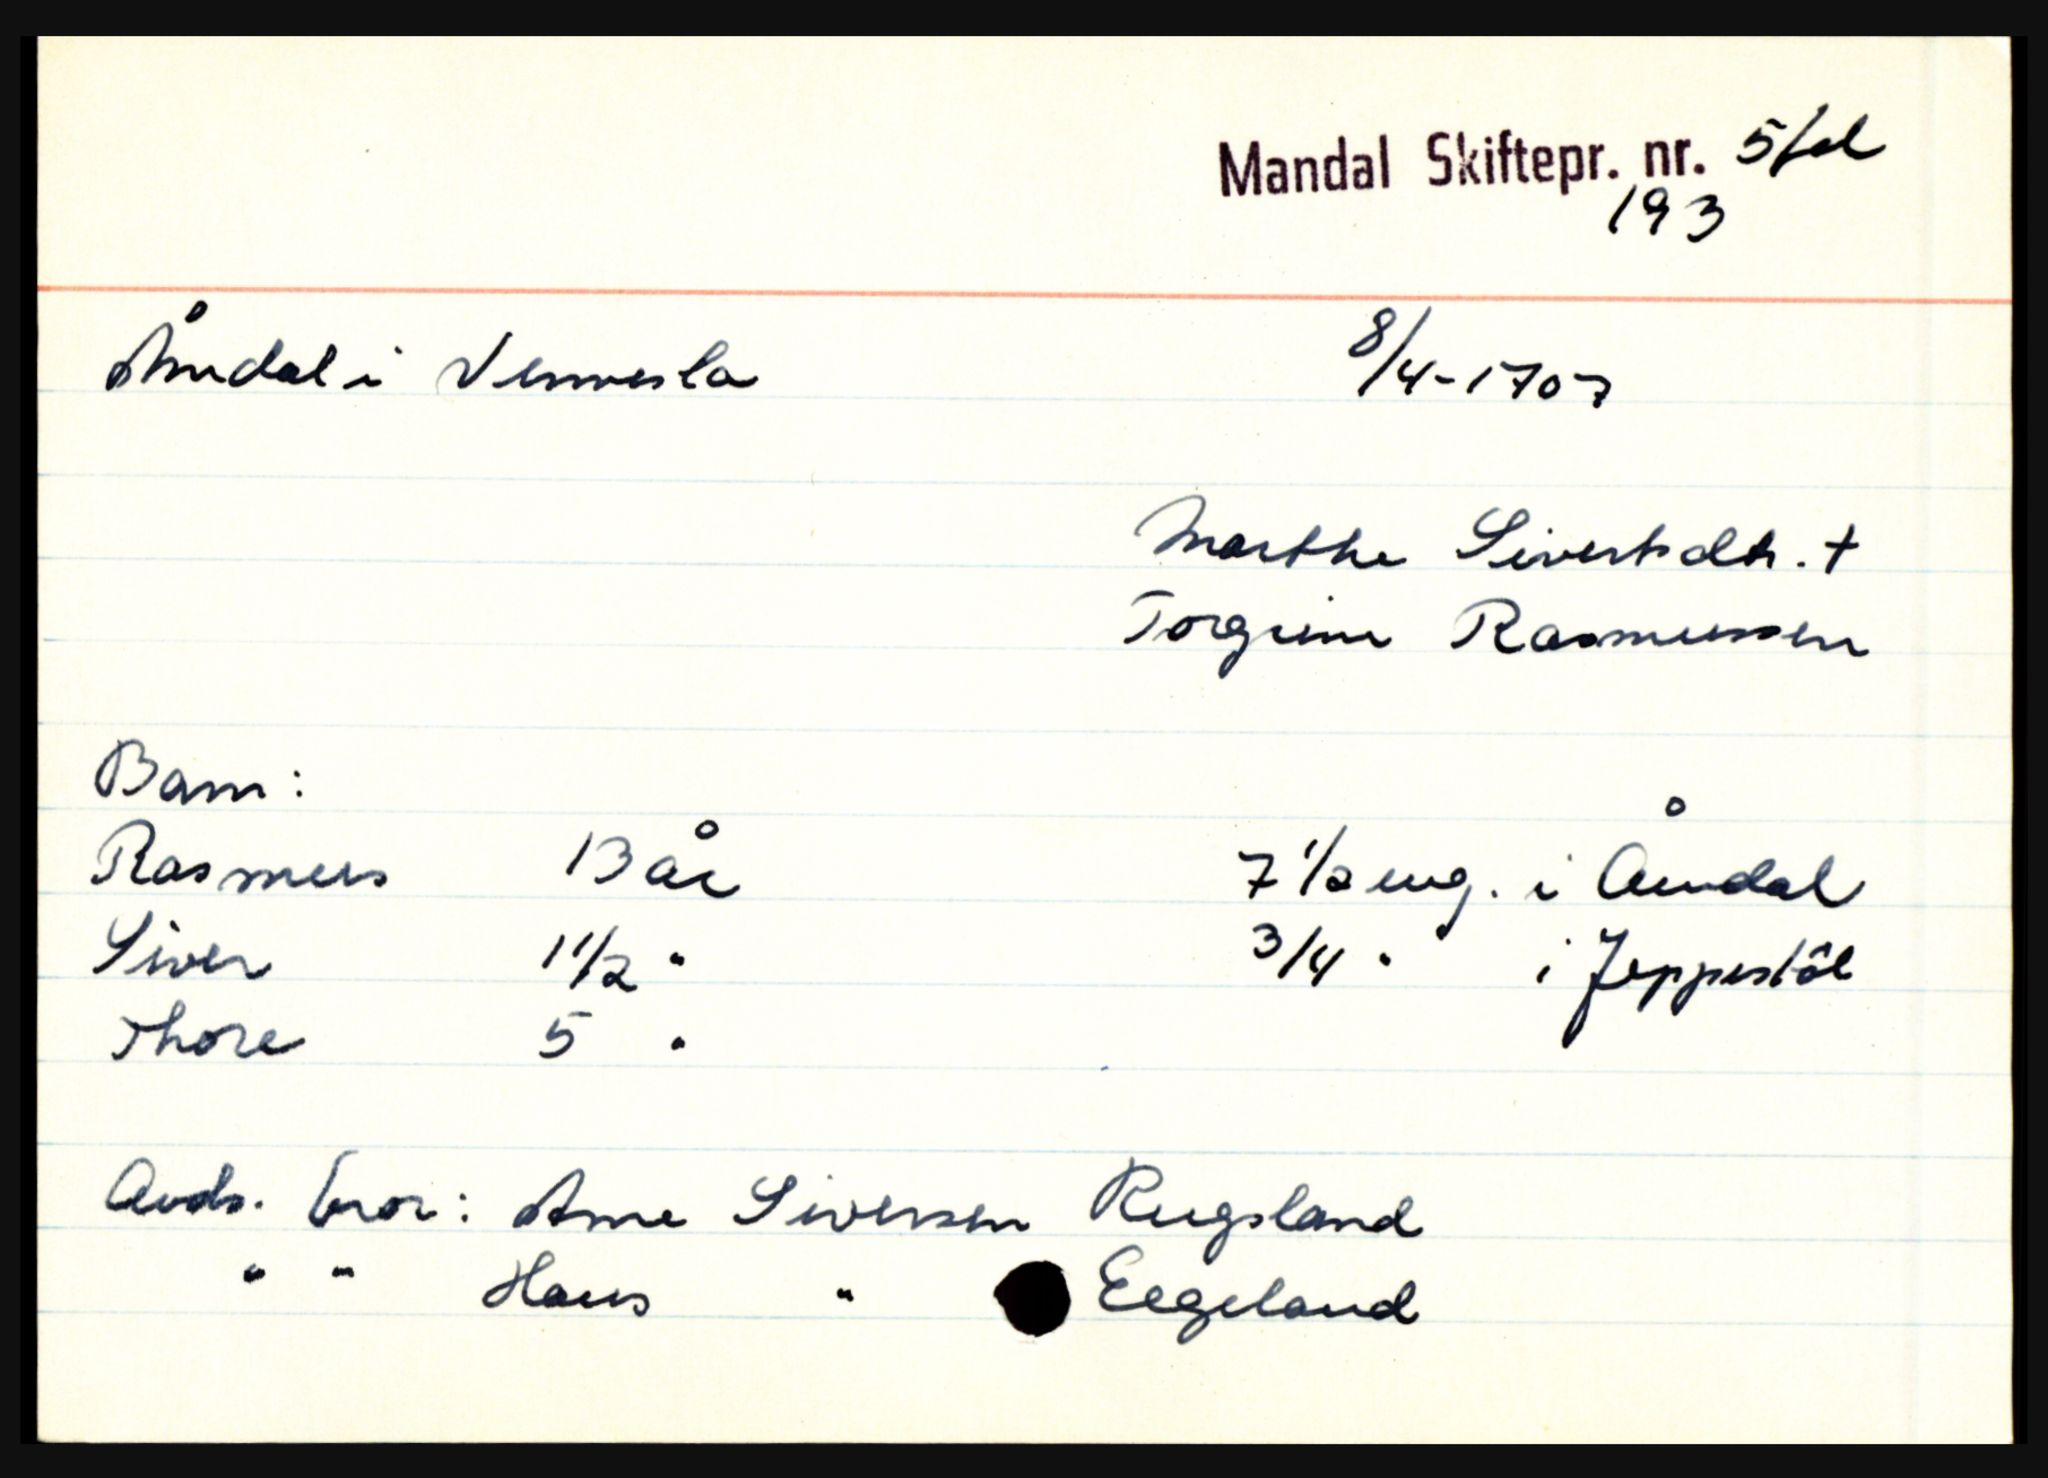 Mandal Skiftepr. nr. 5/fol
193
Åmdal i Vennesla 8/4-1707
Marthe Sivertsdtr. +
Torgrim Rasmussen
Barn:
Rasmus 13 år 7 1/2 eng. i Åmdal
Siver 1 1/2 " 3/4 " i Jeppestöl
Thore 5 "
Avds. bror: Arne Siversen Rugsland
" " Hans " Eegeland